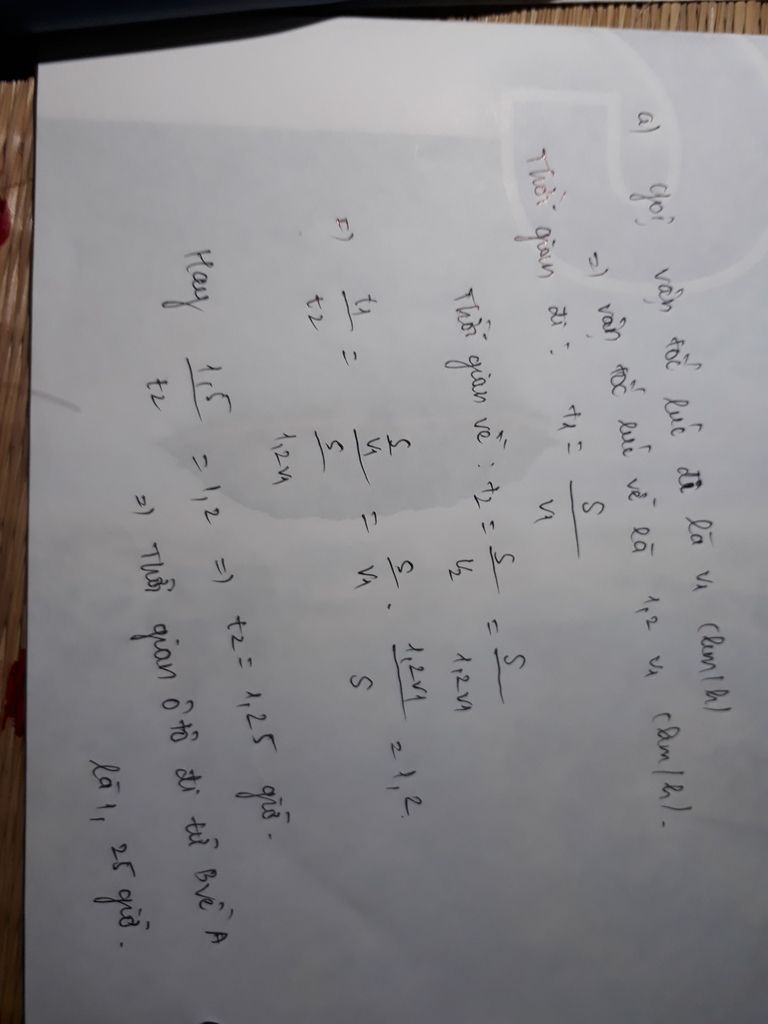 a) Gọi vận tốc lúc đi là v1 (km/h)
=) vận tốc lúc về là 1,2 v1 (km/h).
Thời gian đi: t1 = S/v1
Thời gian về: t2 = S/v2 = S/1,2v1
=) t1/t2 = S/v1 / S/1,2v1 = S/v1 . 1,2v1/S = 1,2.
Hay 1,5/t2 = 1,2 =) t2 = 1,25 giờ.
=) Thời gian ô tô đi từ B về A
là 1,25 giờ.